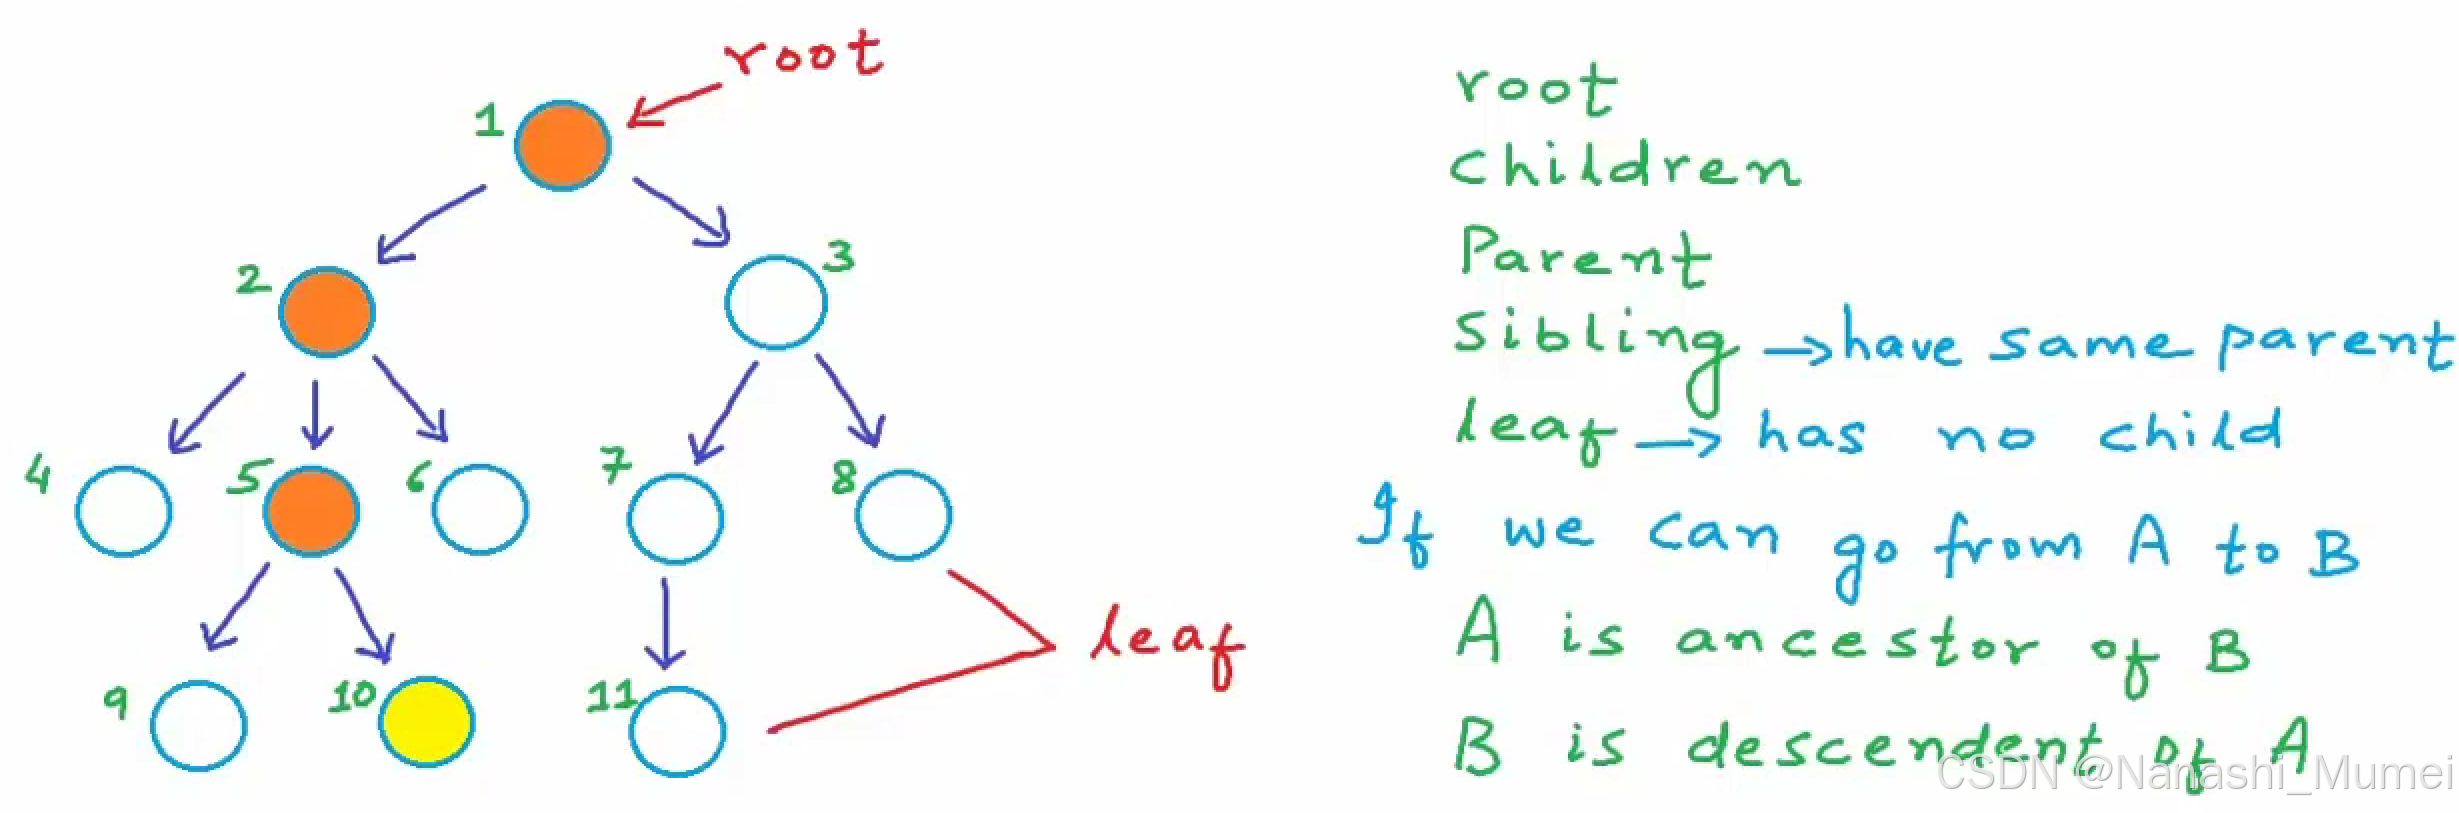 root
1
2
3
4
5
6
7
8
9
10
11
leaf
root
children
Parent
Sibling → have same parent
leaf → has no child
If we can go from A to B
A is ancestor of B
B is descendent of A
CSDN @Nanashi_Mumei